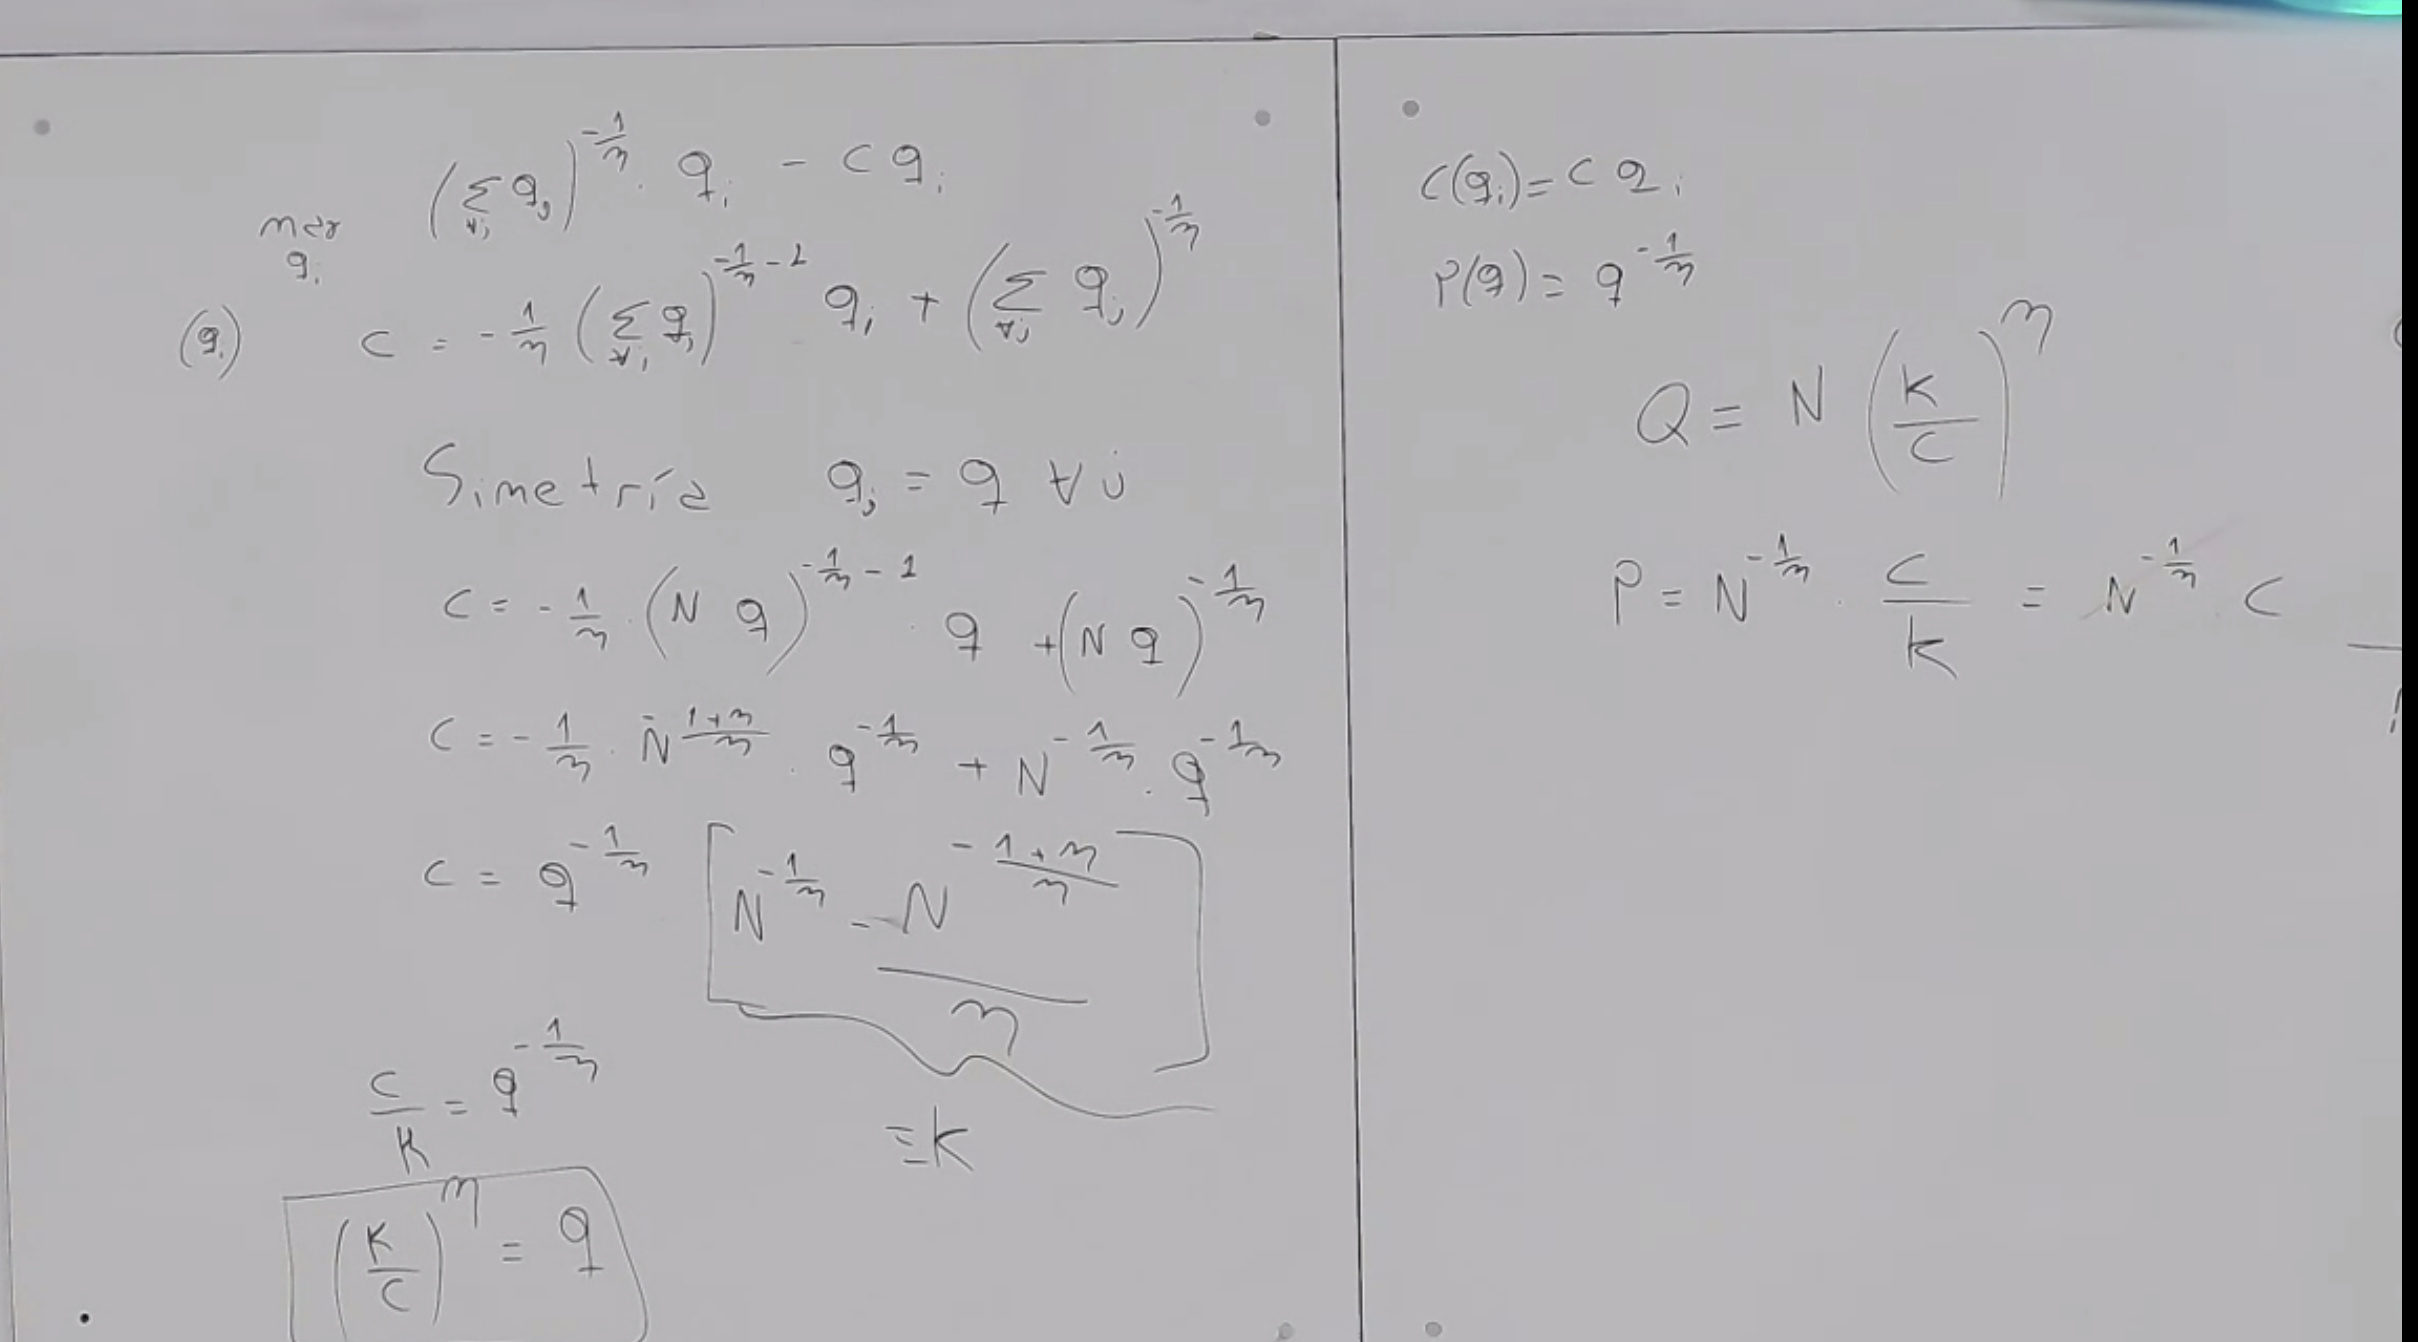 max (Σ qj)^(-1/η) · qi - c qi
qi ∀j
(qi) c = -1/η (Σ qj)^(-1/η - 1) qi + (Σ qj)^(-1/η)
∀j ∀j
Simetría qj = q ∀j
c = -1/η · (N q)^(-1/η - 1) · q + (N q)^(-1/η)
c = -1/η · N^(-(1+η)/η) · q^(-1/η) + N^(-1/η) · q^(-1/η)
c = q^(-1/η) [N^(-1/η) - N^(-(1+η)/η) / η]
≡ K
c/K = q^(-1/η)
(K/c)^η = q
C(qi) = c qi
P(q) = q^(-1/η)
Q = N (K/c)^η
P = N^(-1/η) · c/K = N^(-1/η) · c